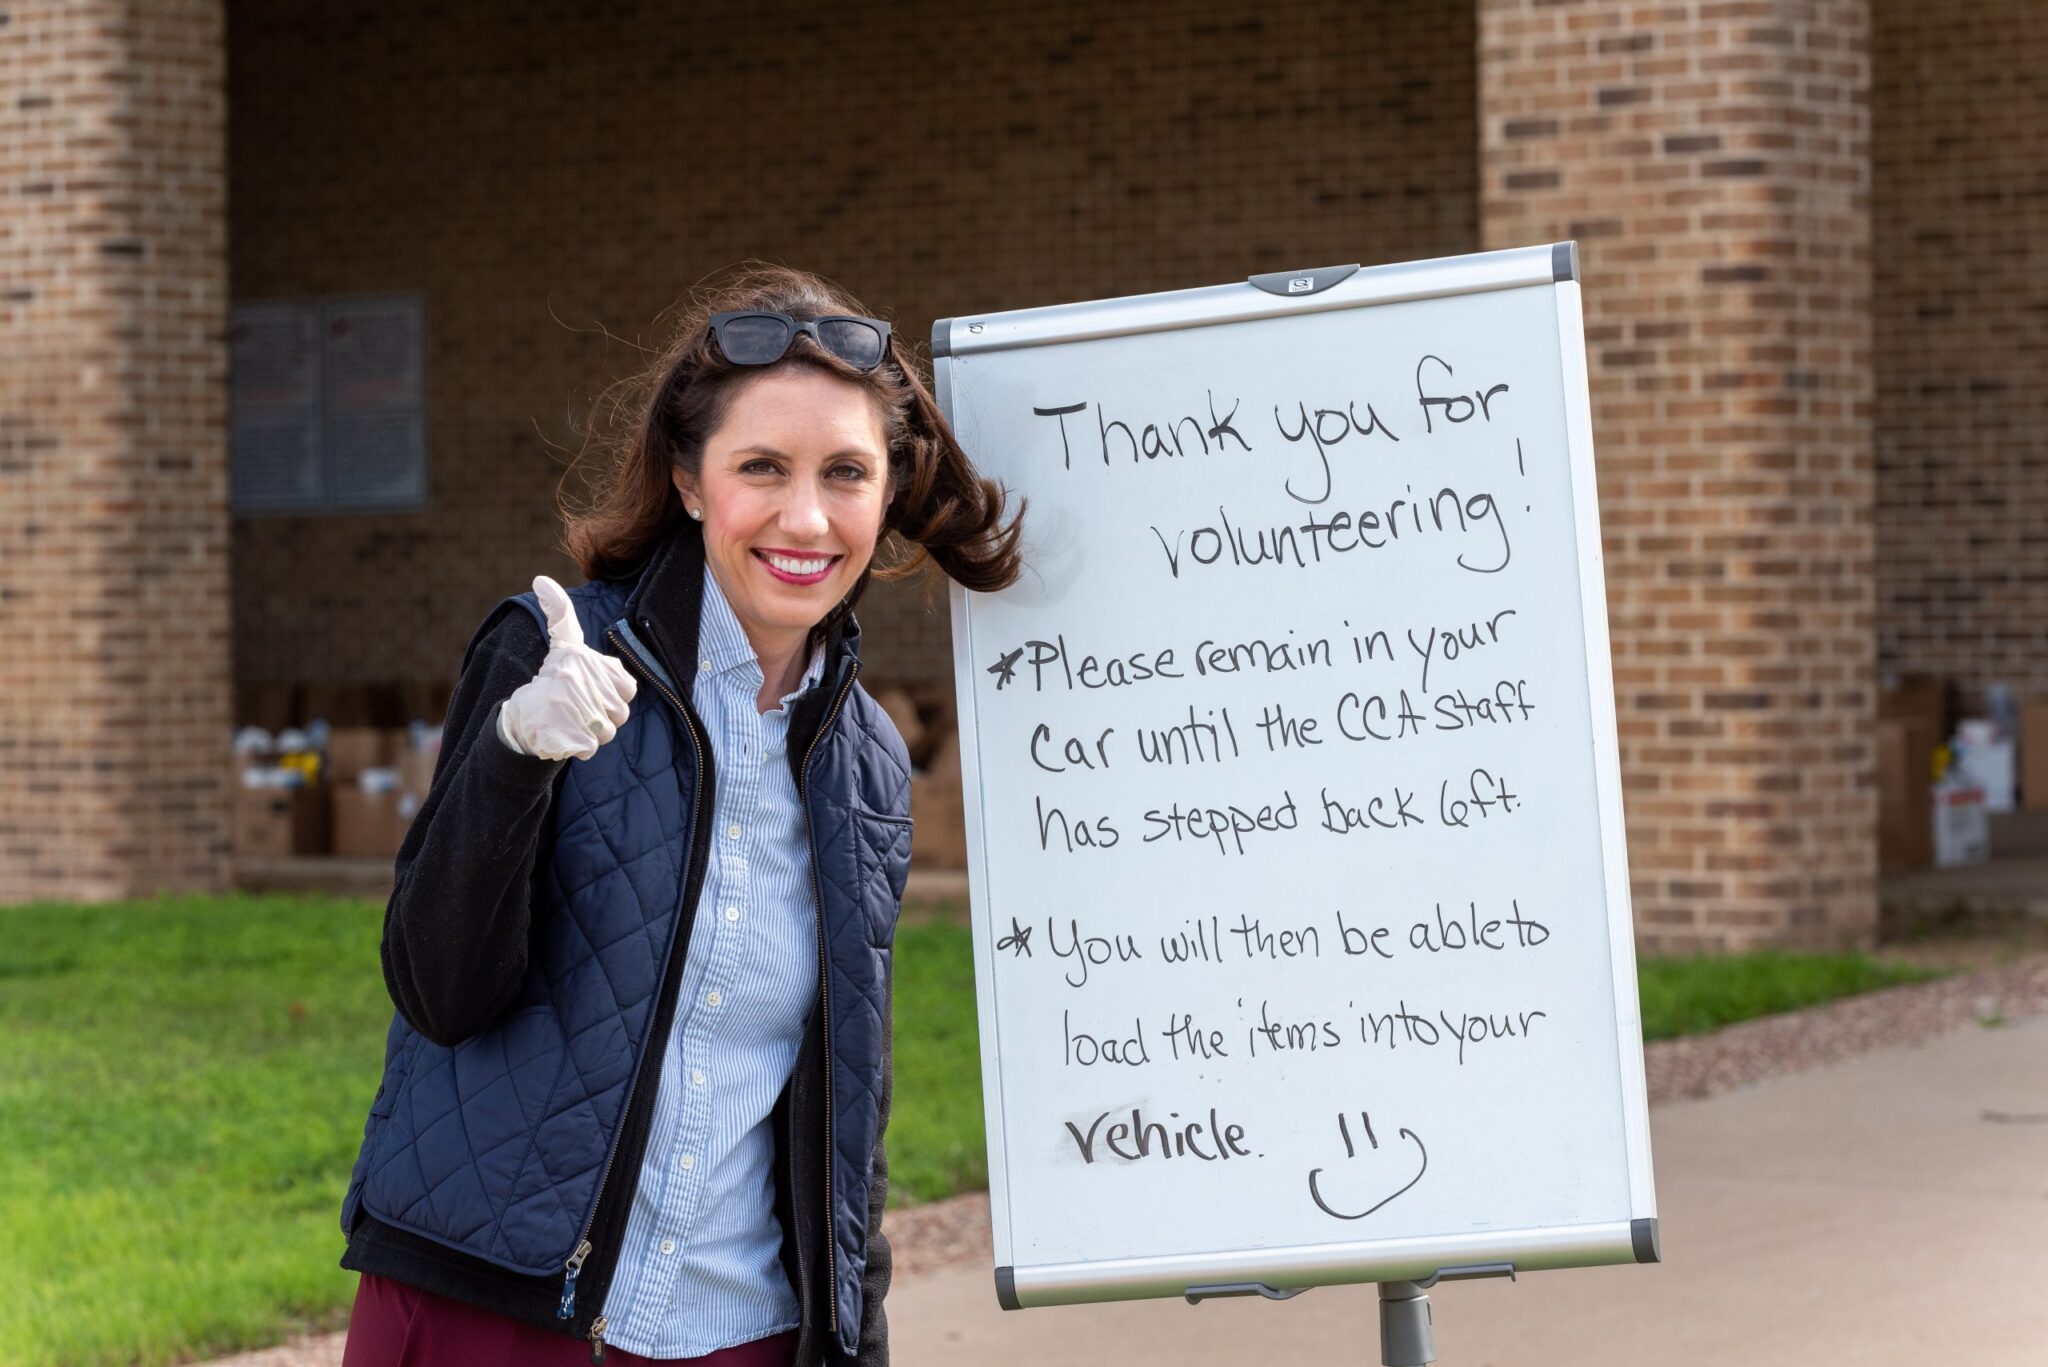 Thank you for
volunteering!
*Please remain in your
car until the CCA staff
has stepped back 6ft.
*You will then be able to
load the items into your
vehicle.